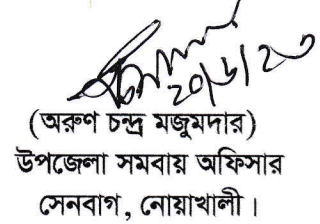 20/6/23
(অরুণ চন্দ্র মজুমদার)
উপজেলা সমবায় অফিসার
সেনবাগ, নোয়াখালী।